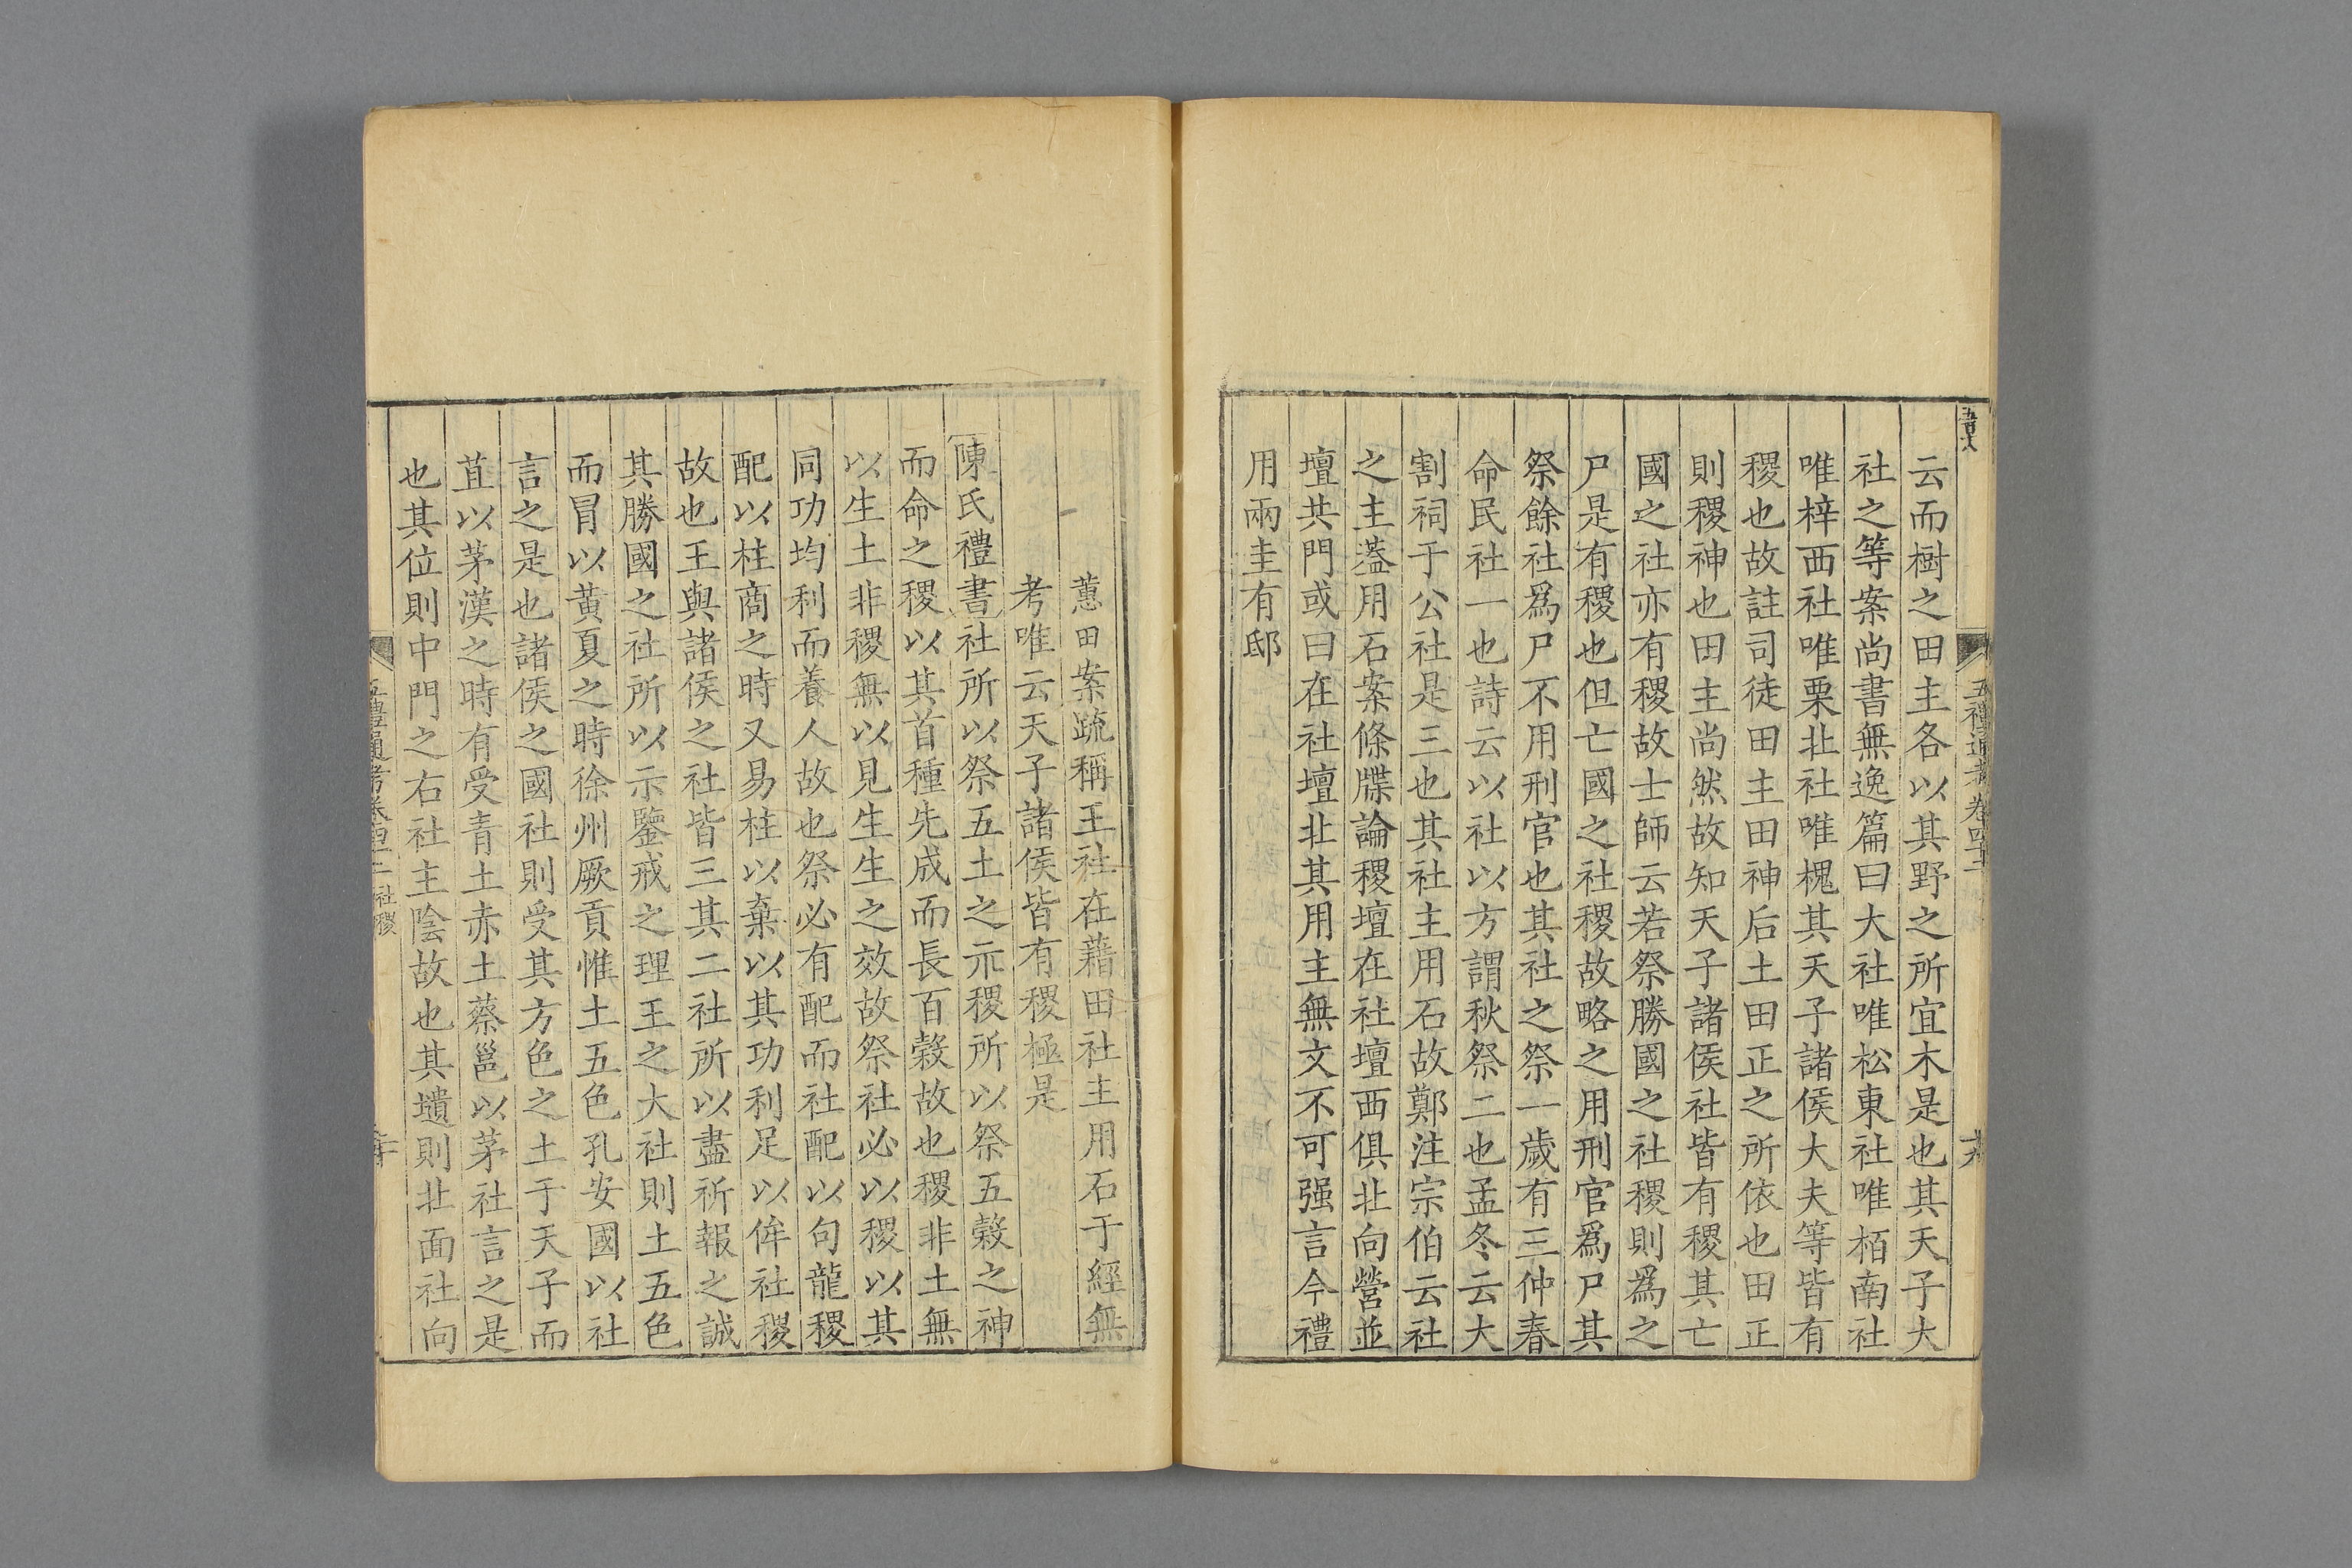 云而樹之田主各以其野之所宜木是也其天子大
社之等案尚書無逸篇曰大社唯松東社唯栢南社
唯梓西社唯栗北社唯槐其天子諸侯大夫等皆有
稷也故註司徒田主田神后土田正之所依也田正
則稷神也田主尚然故知天子諸侯社皆有稷其亡
國之社亦有稷故士師云若祭勝國之社稷則爲之
尸是有稷也但亡國之社稷故略之用刑官爲尸其
祭餘社爲尸不用刑官也其社之祭一歲有三仲春
命民社一也詩云以社以方謂秋祭二也孟冬云大
割祠于公社是三也其社主用石故鄭注宗伯云社
之主葢用石案條牒論稷壇在社壇西俱北向營並
壇共門或曰在社壇北其用主無文不可强言今禮
用兩圭有邸
五禮通考卷四十二
十九
蕙田案疏稱王社在藉田社主用石于經無
考唯云天子諸侯皆有稷極是
陳氏禮書社所以祭五土之示稷所以祭五穀之神
而命之稷以其首種先成而長百穀故也稷非土無
以生土非稷無以見生生之效故祭社必以稷以其
同功均利而養人故也祭必有配而社配以句龍稷
配以柱商之時又易柱以棄以其功利足以侔社稷
故也王與諸侯之社皆三其二社所以盡祈報之誠
其勝國之社所以示鑒戒之理王之大社則土五色
而冒以黃夏之時徐州厥貢惟土五色孔安國以社
言之是也諸侯之國社則受其方色之土于天子而
苴以茅漢之時有受青土赤土蔡邕以茅社言之是
也其位則中門之右社主陰故也其壝則北面社向
五禮通考卷四十二 社稷
二十